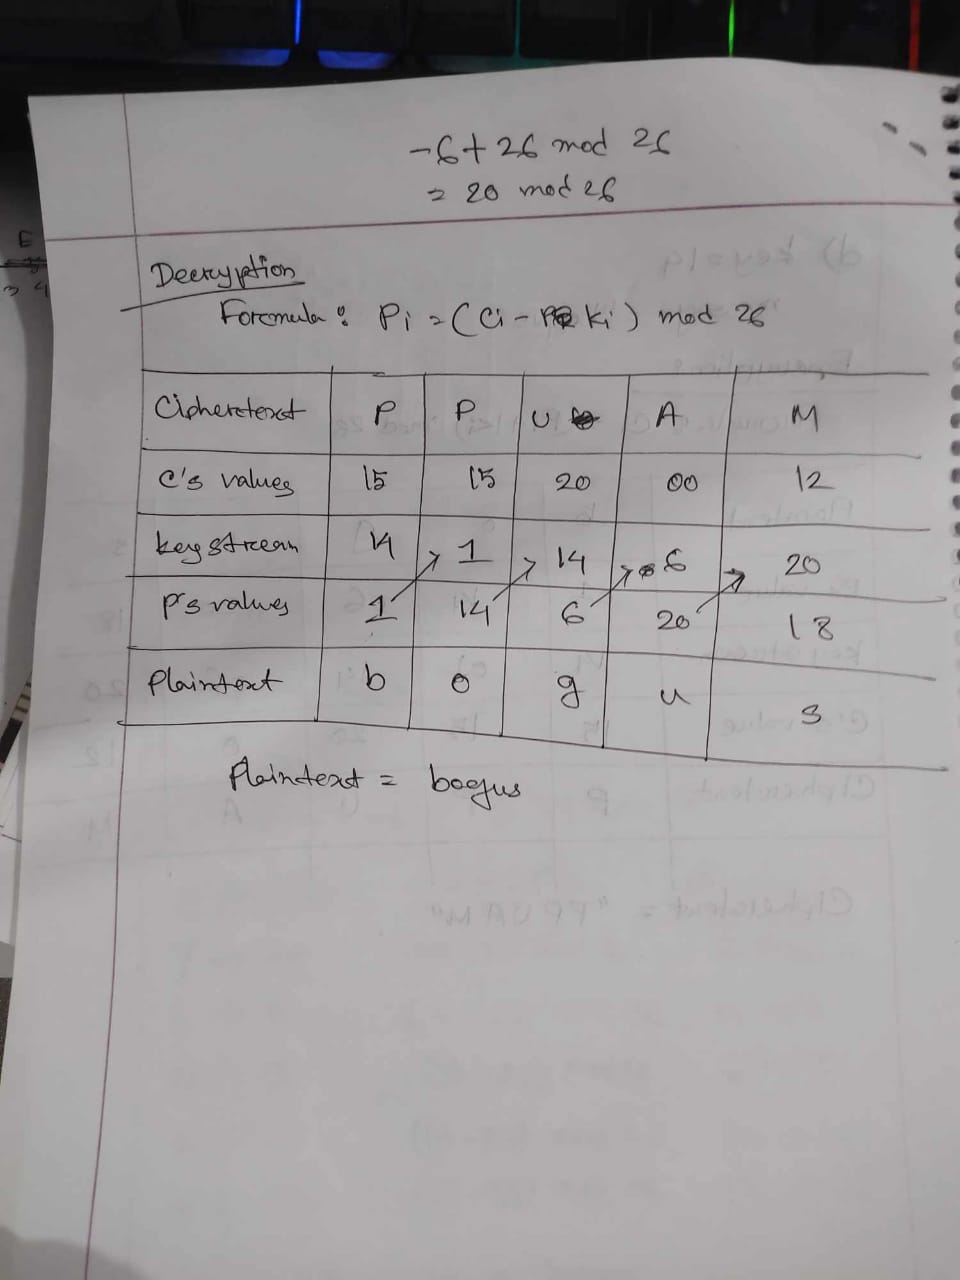 -6+26 mod 26
= 20 mod 26
Decryption
Formula : Pi = (Ci - Ki) mod 26
Ciphertext P P U A M
C's values 15 15 20 00 12
key stream 14 1 14 6 20
P's values 1 14 6 20 18
Plaintext b o g u s
Plaintext = bogus
E
3 4